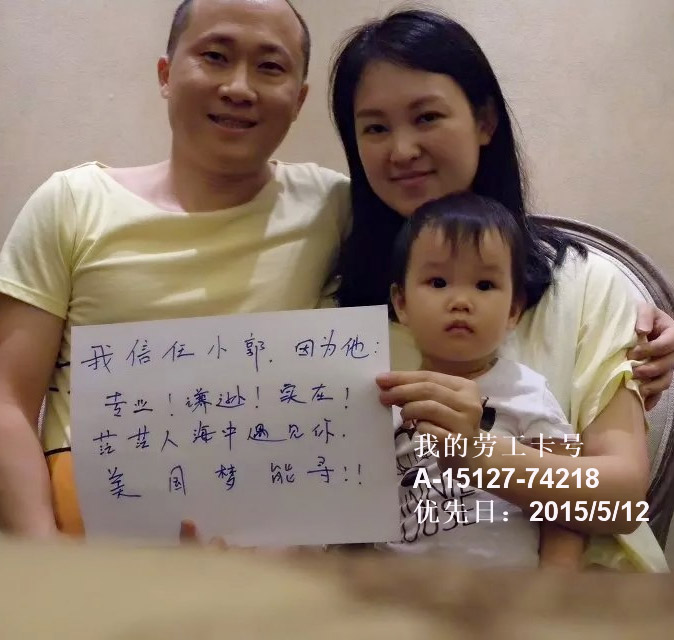 我信任小郭,因为他:
专业!谦逊!实在!
茫茫人海中遇见你.
美国梦能寻!!
我的劳工卡号
A-15127-74218
优先日：2015/5/12